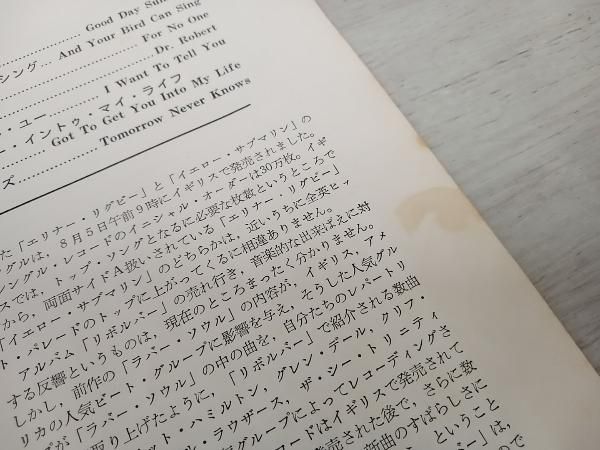 Good Day Sun
シング… And Your Bird Can Sing
For No One
Dr. Robert
・ユー… I Want To Tell You
ー・イントゥ・マイ・ライフ
Got To Get You Into My Life
ズ… Tomorrow Never Knows
た「エリナー・リグビー」と「イエロー・サブマリン」の
ングルは、8月5日午前9時にイギリスで発売されました。
シングル・レコードのイニシャル・オーダーは30万枚。イギ
スでは、トップ・ソングとなるに必要な枚数というところで
から、両面サイドA扱いされている「エリナー・リグビー」
「イエロー・サブマリン」のどちらかは、近いうちに全英ヒッ
ト・パレードのトップに上がってくるに相違ありません。
アルバム「リボルバー」の売れ行き、音楽的な出来ばえに対
する反響というものは、現在のところまったく分かりません。
しかし、前作の「ラバー・ソウル」の内容が、イギリス、アメ
リカの人気ビート・グループに影響を与え、そうした人気グル
プが「ラバー・ソウル」の中の曲を、自分たちのレパートリ
取り上げたように、「リボルバー」で紹介される数曲
ット・ハミルトン、グレン・デール、クリフ・
ル・ラウザース、ザ・シー・トリニティ
グループによってレコーディングさ
コードはイギリスで発売されて
発売された後で、さらに数
新曲のすばらしさに
ということ
バー」は、
ので